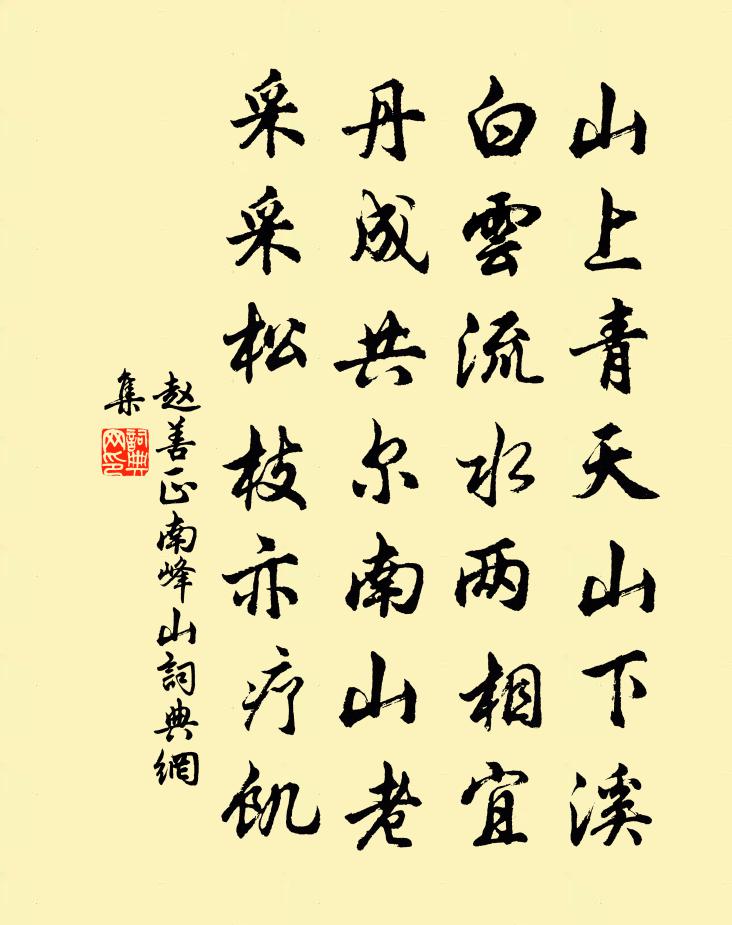 山上青天山下溪
白雲流水两相宜
丹成共尔南山老
采采松枝亦疗飢
赵善正南峰山詞典網
集
詞典
网印